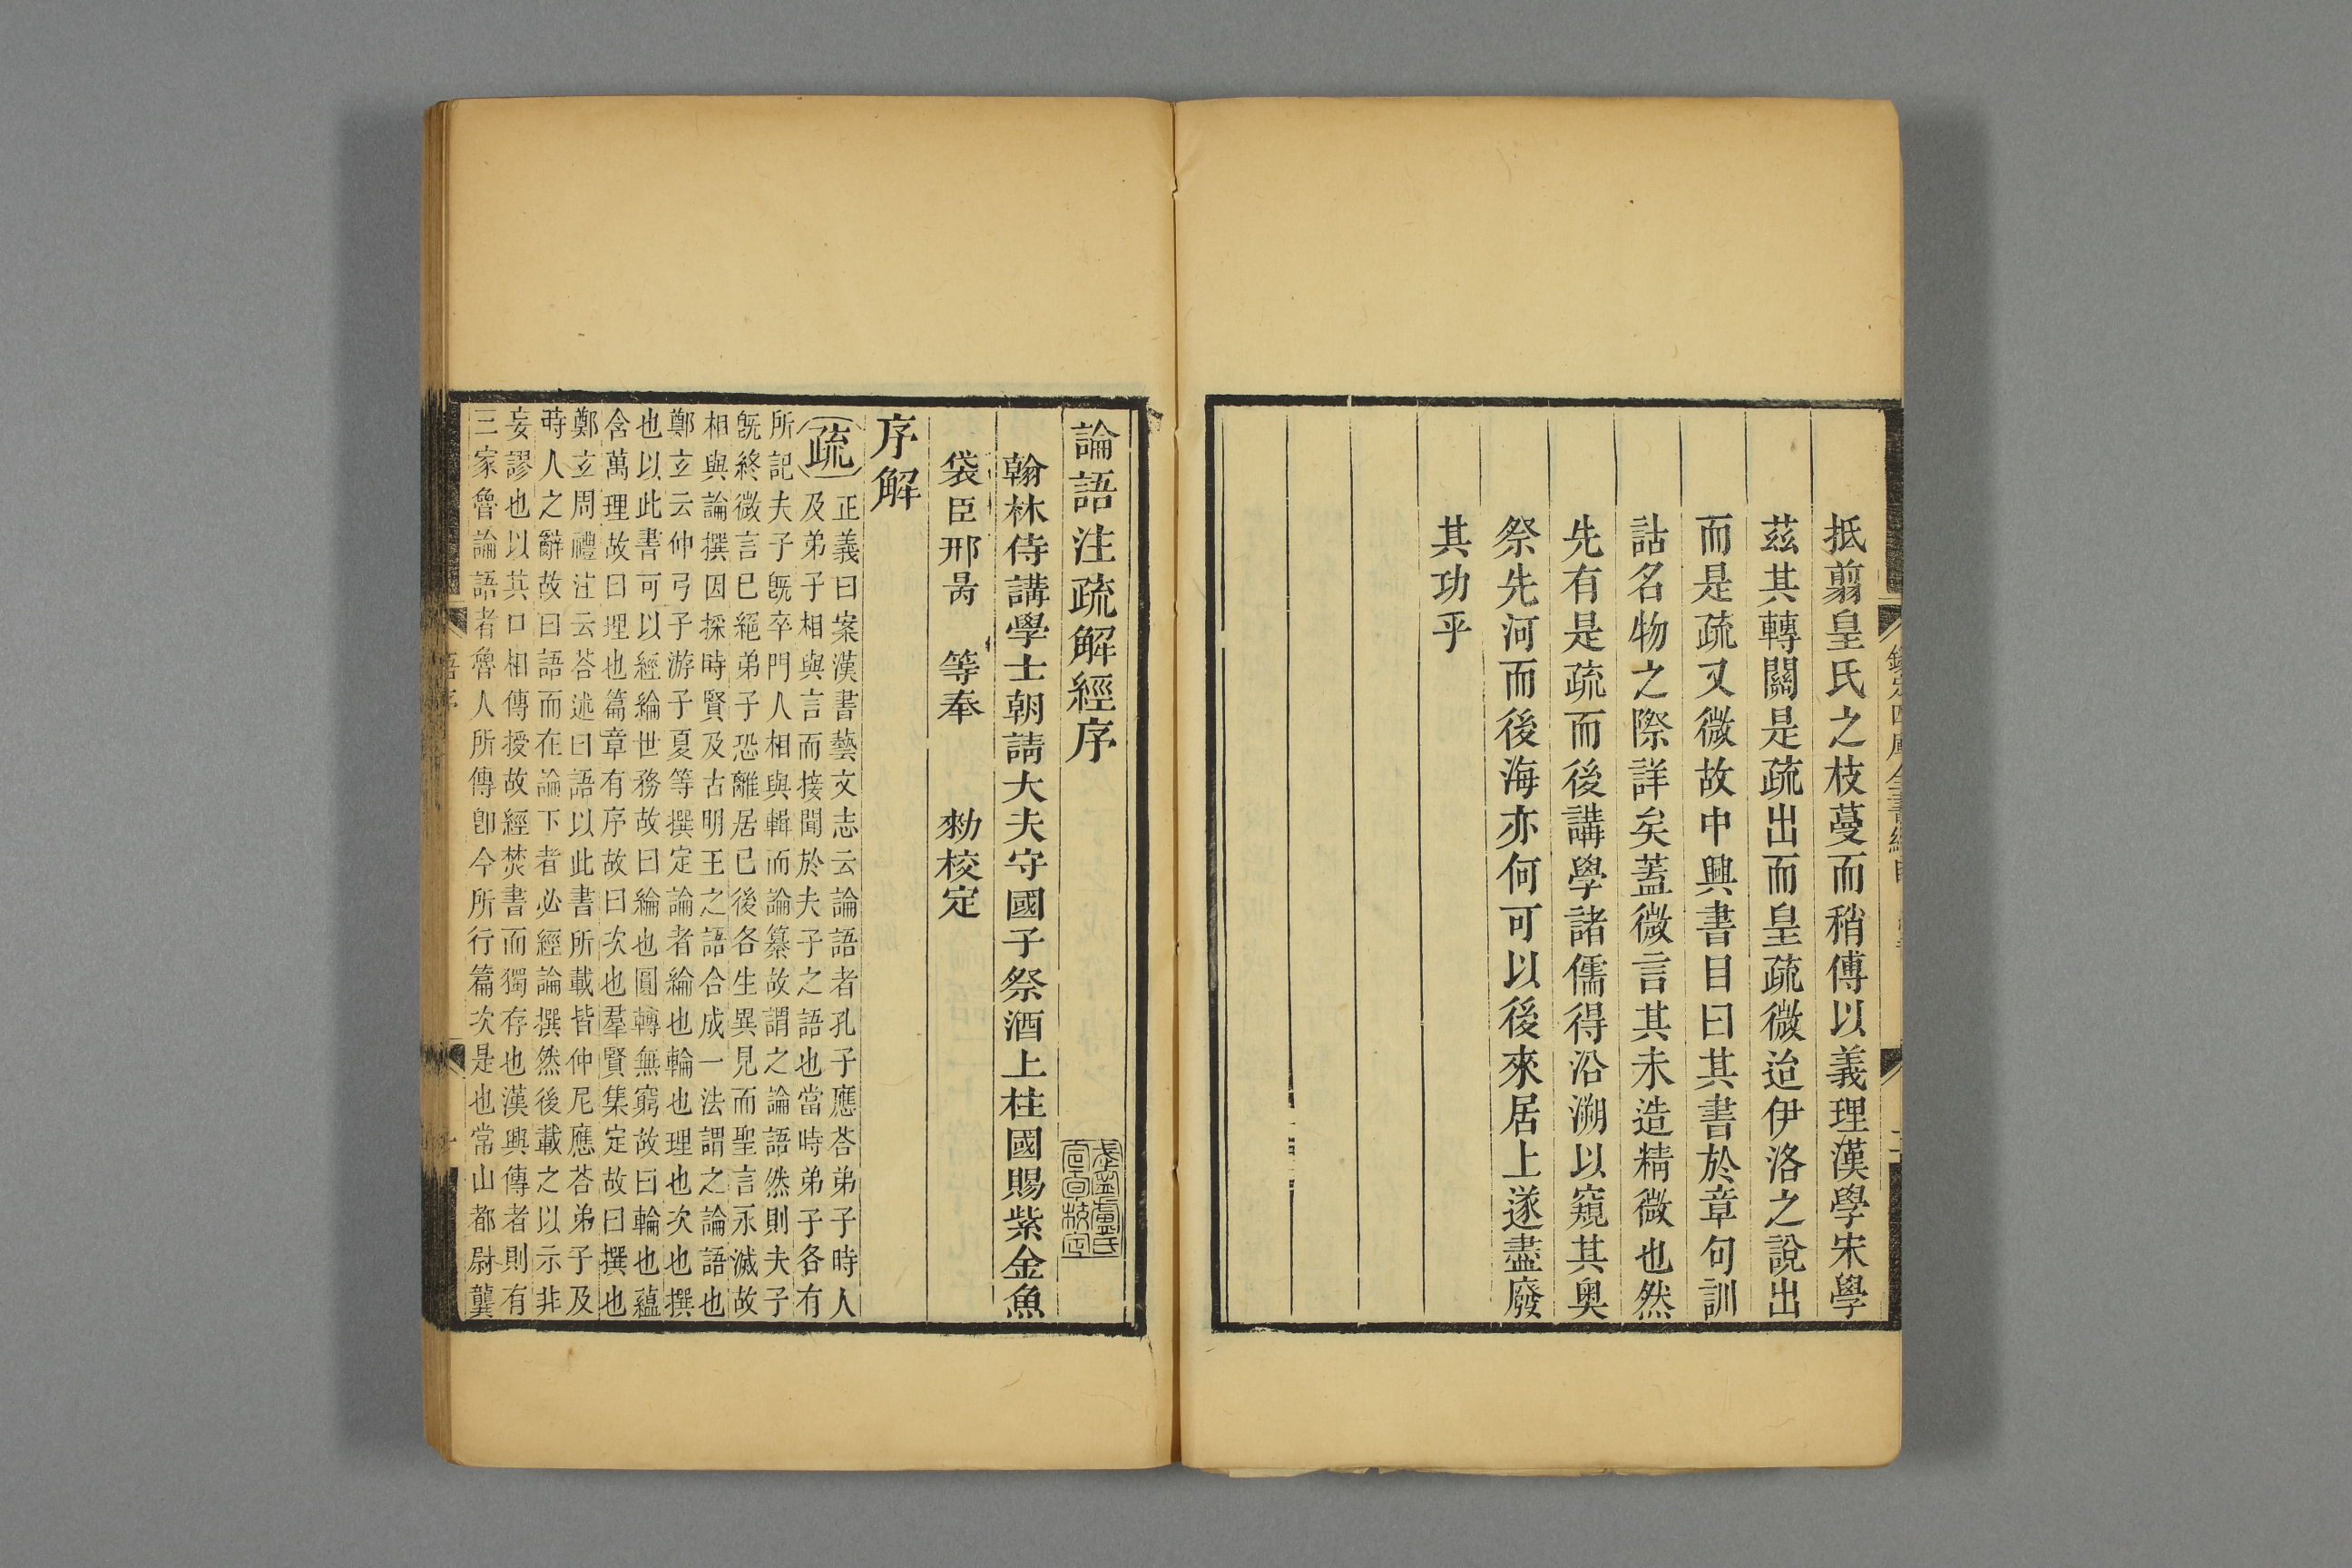 抵翦皇氏之枝蔓而稍傅以義理漢學宋學
茲其轉關是疏出而皇疏微迨伊洛之說出
而是疏又微故中興書目曰其書於章句訓
詁名物之際詳矣蓋微言其未造精微也然
先有是疏而後講學諸儒得沿溯以窺其奧
祭先河而後海亦何可以後來居上遂盡廢
其功乎
論語注疏解經序
翰林侍講學士朝請大夫守國子祭酒上柱國賜紫金魚
袋臣邢昺 等奉 勑校定
序解
疏
正義曰案漢書藝文志云論語者孔子應荅弟子時人
及弟子相與言而接聞於夫子之語也當時弟子各有
所記夫子旣卒門人相與輯而論篹故謂之論語然則夫子
旣終微言已絕弟子恐離居已後各生異見而聖言永滅故
相與論撰因採時賢及古明王之語合成一法謂之論語也
鄭玄云仲弓子游子夏等撰定論者綸也輪也理也次也撰
也以此書可以經綸世務故曰綸也圓轉無窮故曰輪也蘊
含萬理故曰理也篇章有序故曰次也羣賢集定故曰撰也
鄭玄周禮注云荅述曰語以此書所載皆仲尼應荅弟子及
時人之辭故曰語而在論下者必經論撰然後載之以示非
妄謬也以其口相傳授故經焚書而獨存也漢興傳者則有
三家魯論語者魯人所傳卽今所行篇次是也常山都尉龔